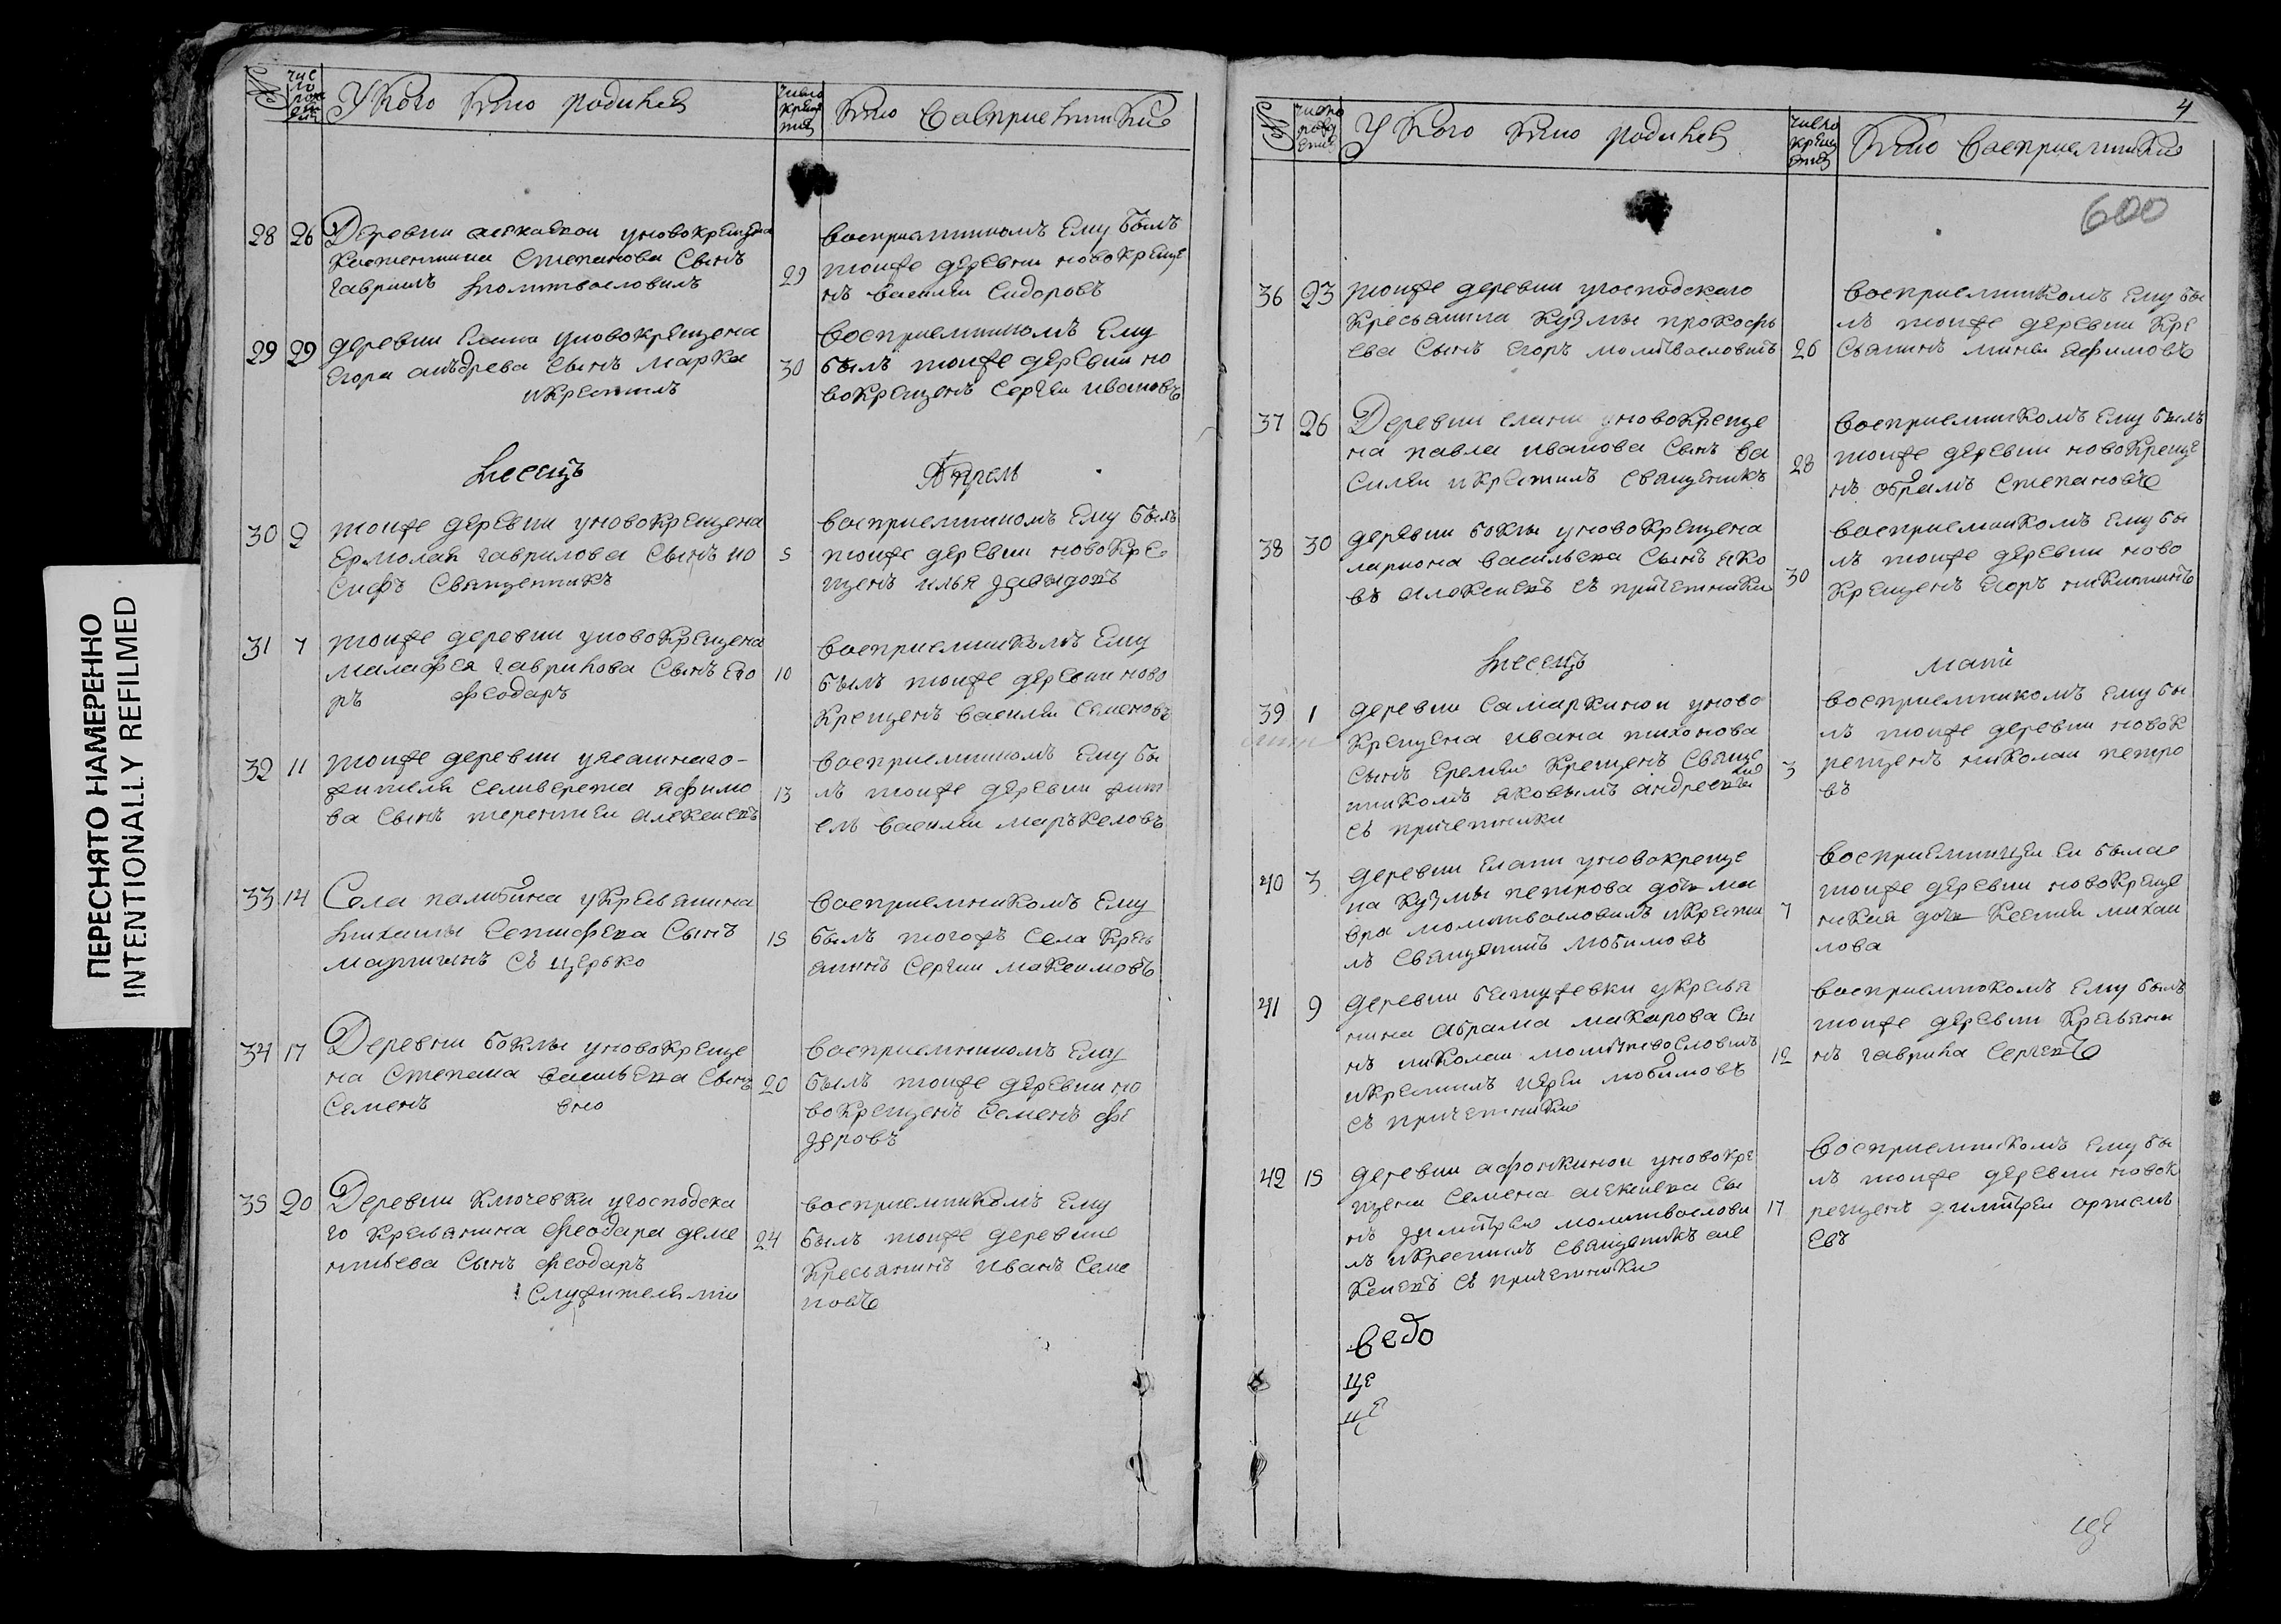 ПЕРЕСНЯТО НАМЕРЕННО
INTENTIONALLY REFILMED
№
число рождения
У кого кто родился
число крещения
кто восприемники
28 26 Деревни у новокрещена
Костентина Степанова сынъ
Гавриилъ молитвословилъ
29
восприемникомъ ему былъ
тоиже деревни новокреще
нъ василеи Сидоровъ
29 29 деревни Елани у новокрещена
Егора анъдрева сынъ Марка
икрестилъ
30
восприемникомъ Ему
былъ тоиже деревни но
вокрещенъ Сергеи Ивановъ
месецъ
Апрель
30 2 тоиже деревни у новокрещена
Ермолая гаврилова Сынъ ио
сифъ Священникъ
5
восприемникомъ Ему былъ
тоиже деревни новокре
щенъ илья давыдовъ
31 7 тоиже деревни у новокрещена
малафея гаврилова Сынъ его
ръ феодаръ
10
восприемникомъ Ему
былъ тоиже деревни ново
крещенъ василеи Семеновъ
32 11 тоиже деревни уясашнаго
жителя Селиверста афимо
ва сынъ терентеи алексеевъ
13
восприемникомъ Ему бы
лъ тоиже деревни жит
ель василеи маръкеловъ
33 14 Села палибина у кресьянина
никиты Сынъ
мартинъ съ церько
15
восприемникомъ Ему
былъ тогожъ Села крес
янинъ Сергии максимовъ
34 17 Деревни боклы у новокреще
на Степана васильева Сынъ
Семенъ
20
восприемникомъ Ему
былъ тоиже деревни но
вокрещенъ Семенъ фе
доровъ
35 20 Деревни ключевки угосподска
го кресьянина феодара деме
нтьева Сынъ феодаръ
Служительми
24
восприемникомъ Ему
былъ тоиже деревни
кресьянинъ Иванъ Семе
новъ
4
№
число рождения
У кого кто родился
число крещения
кто восприемники
600
36 23 тоиже деревни угосподскаго
кресьянина кузмы прокофь
ева Сынъ Егоръ молитвословилъ
26
восприемникомъ Ему бы
лъ тоиже деревни кре
сьянинъ миней афимовъ
37 26 Деревни елани уновокреще
на павла иванова Сынъ ва
силеи икрестилъ священикъ
28
восприемникомъ Ему былъ
тоиже деревни новокреще
нъ абрамъ степановъ
38 30 деревни боклы уновокрещена
лариона васильева Сынъ яко
въ алексеевъ съ причетники
30
восприемникомъ ему бы
лъ тоиже деревни ново
крещенъ Егоръ никитинъ
месецъ
маии
39 1 деревни Самаркинои уново
крещена ивана тихонова
сынъ Еремеи крещенъ Свяще
никомъ яковымъ андреевымъ
съ причетники
3
восприемникомъ ему бы
лъ тоиже деревни новок
рещенъ николаи петро
въ
40 3 деревни Елани уновокреще
на кузмы петрова дочь ма
вра молитвословилъ икрести
лъ Священикъ любимовъ
7
восприемницеи еи была
тоиже деревни новокреще
ная дочь ксения михаи
лова
41 9 деревни бетужевки укресья
нина абрама макарова сы
нъ николаи молитвословилъ
икрестилъ иереи любимовъ
съ причетники
12
восприемникомъ ему былъ
тоиже деревни кресьяни
нъ гаврила Сергеевъ
42 15 деревни афонкинои уновокре
щена Семена алексеева сы
нъ димитреи молитвослови
лъ икрестилъ священикъ але
ксеевъ съ причетники
17
восприемникомъ ему бы
лъ тоиже деревни новок
рещенъ димитреи артемь
евъ
ведо
це
це